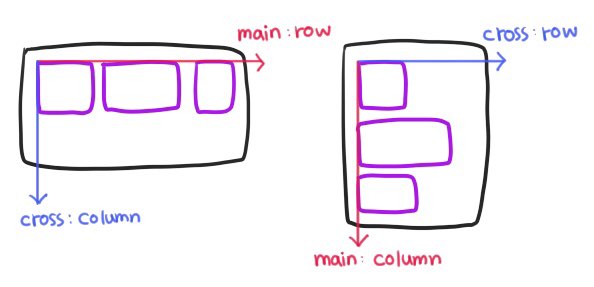 main: row
cross: column
cross: row
main: column